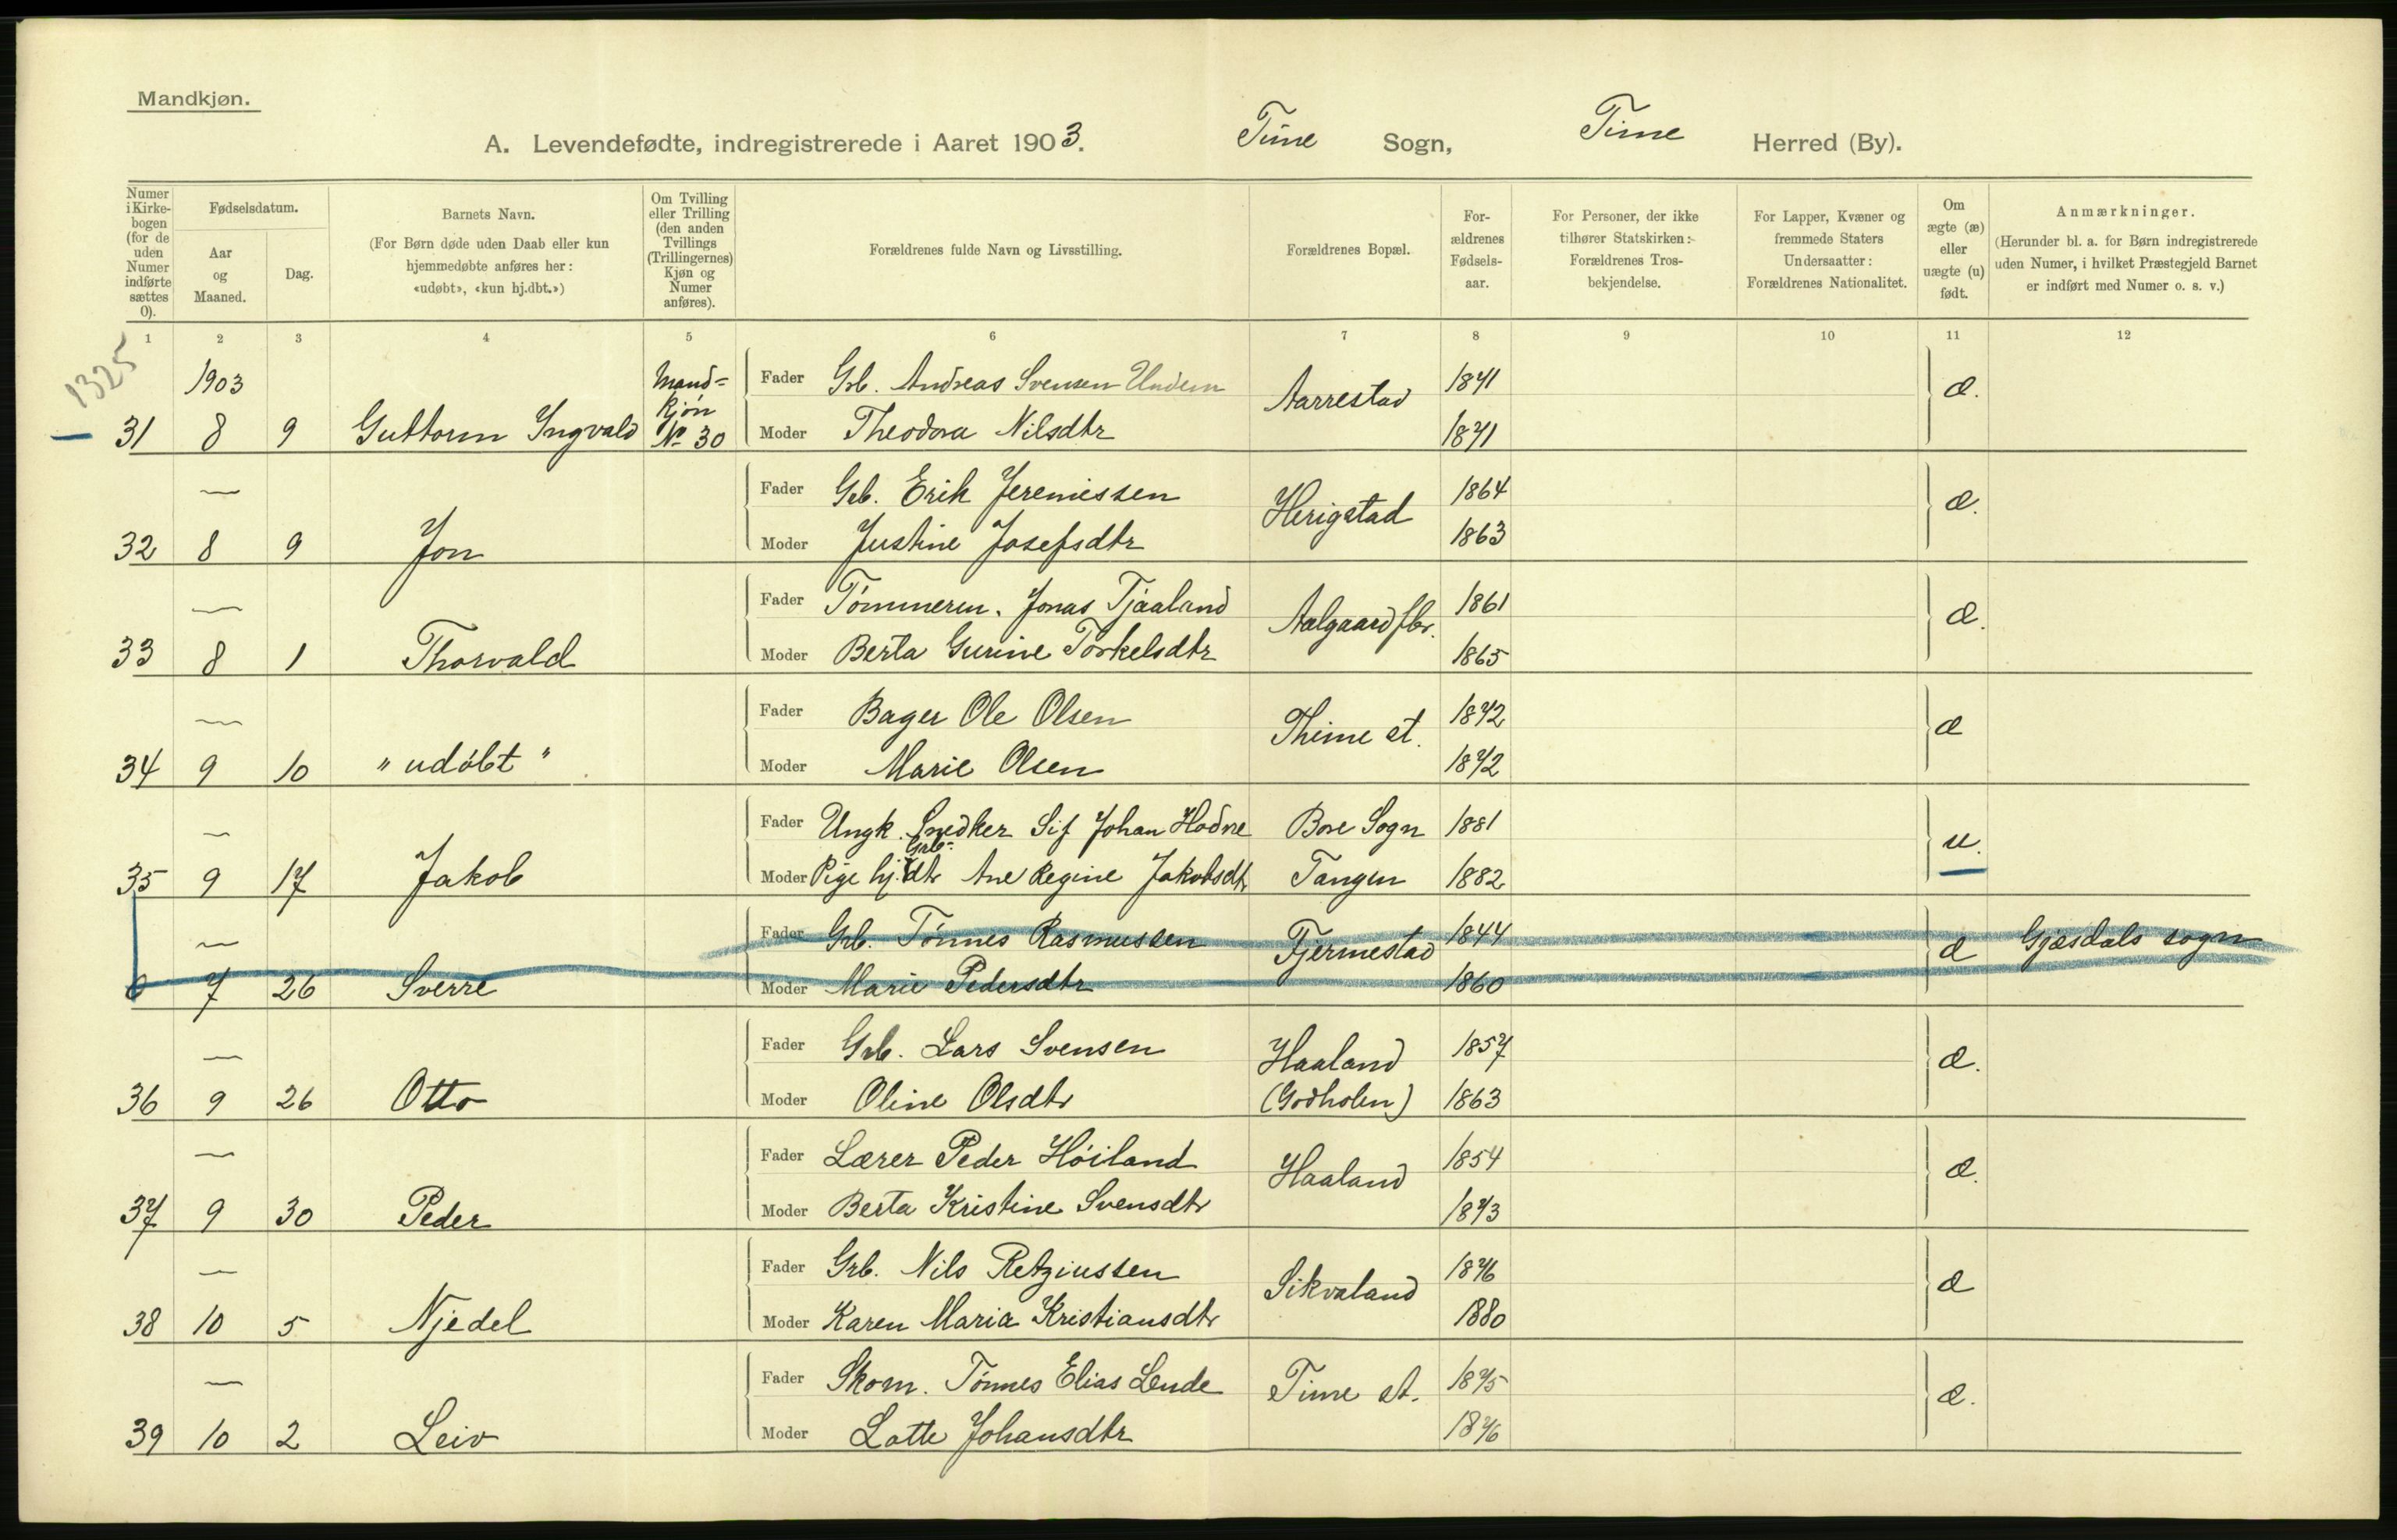 Mandkjøn.
A. Levendefødte, indregistrerede i Aaret 1903. Time Sogn, Time Herred (By).
Numer i Kirkebogen (for de uden Numer indførte sættes 0).
Fødselsdatum.
Aar og Maaned.
Dag.
Barnets Navn.
(For Børn døde uden Daab eller kun hjemmedøbte anføres her: «udøbt», «kun hj.dbt.»)
Om Tvilling eller Trilling (den anden Tvillings (Trillingernes) Kjøn og Numer anføres).
Forældrenes fulde Navn og Livsstilling.
Forældrenes Bopæl.
Forældrenes Fødselsaar.
For Personer, der ikke tilhører Statskirken: Forældrenes Trosbekjendelse.
For Lapper, Kvæner og fremmede Staters Undersaatter: Forældrenes Nationalitet.
Om ægte (æ) eller uægte (u) født.
Anmærkninger.
(Herunder bl. a. for Børn indregistrerede uden Numer, i hvilket Præstegjeld Barnet er indført med Numer o. s. v.)
1 2 3 4 5 6 7 8 9 10 11 12
1325
1903 Mandkjøn Fader Grb. Andreas Svensen Undem Aarrestad 1871 æ.
31 8 9 Guttorm Ingvald No 30 Moder Theodora Nilsdtr 1871
— Fader Grb. Erik Jeremiessen Herigstad 1864 æ.
32 8 9 Jon Moder Justine Josefsdtr 1863
— Fader Tømmerm. Jonas Tjaaland Aalgaard fbr. 1861 æ.
33 8 1 Thorvald Moder Berta Gurine Torkelsdtr 1865
— Fader Bager Ole Olsen Thime st. 1872 æ
34 9 10 "udøbt" Moder Marie Olsen 1872
— Fader Ungk. Snedker Sif Johan Hodne Bore Sogn 1881 u.
35 9 17 Jakob Moder Pige hj. Grb-dtr Ane Regine Jakobsdtr Tangen 1882
— Fader Grb. Tønnes Rasmussen Fjermestad 1844 æ Gjæsdals sogn
0 7 26 Sverre Moder Marie Pedersdtr 1860
— Fader Grb. Lars Svensen Haaland 1857 æ.
36 9 26 Otto Moder Oline Olsdtr (Godholen) 1863
— Fader Lærer Peder Høiland Haaland 1854 æ.
37 9 30 Peder Moder Berta Kristine Svensdtr 1873
— Fader Grb. Nils Retziussen Sikvaland 1876 æ
38 10 5 Njedel Moder Karen Maria Kristiansdtr 1880
— Fader Skom. Tønnes Elias Lende Time st. 1875 æ.
39 10 2 Leiv Moder Lotte Johansdtr 1876